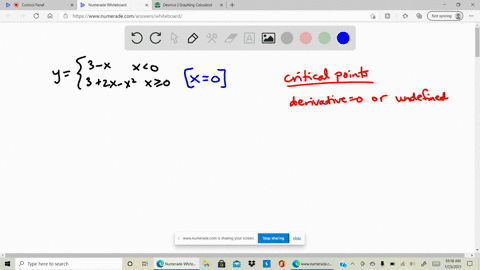 Control Panel
Numerade Whiteboard
Desmos | Graphing Calculator
https://www.numerade.com/answers/whiteboard/
Not syncing
y = { 3 - x x < 0
3 + 2x - x² x ≥ 0
[x = 0]
critical points
derivative = 0 or undefined
www.numerade.com is sharing your screen.
Stop sharing
Hide
Type here to search
Numerade Whit...
10:56 AM
1/25/2021